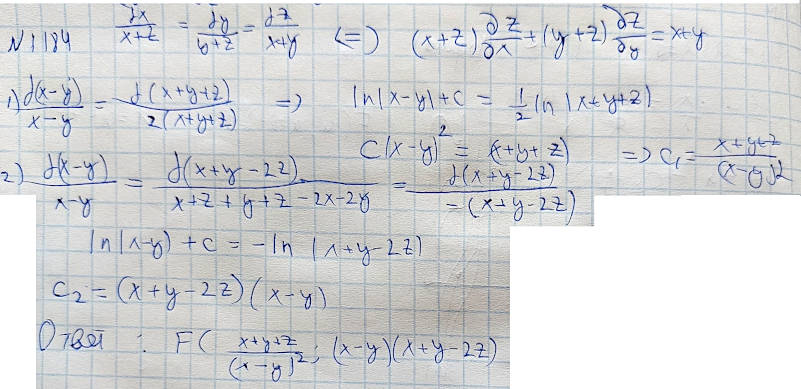 N1184 dx/(x+z) = dy/(y+z) = dz/(x+y) <=> (x+z) ∂z/∂x + (y+z) ∂z/∂y = x+y
1) d(x-y)/(x-y) = d(x+y+z)/(2(x+y+z)) => ln|x-y|+c = 1/2 ln|x+y+z|
C(x-y)^2 = (x+y+z) => C₁ = (x+y+z)/(x-y)^2
2) d(x-y)/(x-y) = d(x+y-2z)/(x+z+y+z-2x-2y) = d(x+y-2z)/(-(x+y-2z))
ln|x-y)+c = -ln|x+y-2z)
C₂ = (x+y-2z)(x-y)
Ответ : F( (x+y+z)/(x-y)^2 ; (x-y)(x+y-2z)